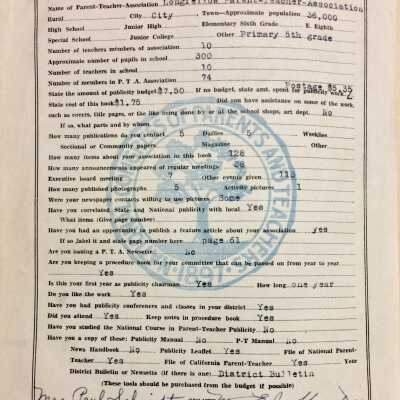 Name of Parent-Teacher-Association Longfellow Parent-Teacher-Association
Rural City City Town—Approximate population 36,000
High School Junior High Elementary Sixth Grade E. Eighth
Special School Junior College Other Primary 5th grade
Number of teachers members of association 10
Approximate number of pupils in school 300
Number of teachers in school 10
Number of members in P. T. A. Association 74 Postage $5.35
State the amount of publicity budget $7.50 If no budget, state amt. spent for publicity work
State cost of this book $1.75 Did you have assistance on some of the work
such as covers, title pages, or the like being done by or at the school shops, art dept. No
If so, what parts and by whom
How many publications do you contact 5 Dailies 5 Weeklies
Sectional or Community papers Magazine Other
How many items about your association in this book 126
How many announcements appeared of regular meetings
Executive board meeting 7 Other events given
How many published photographs 5 Activity pictures 1
Were your newspaper contacts willing to use pictures Some
Have you correlated State and National publicity with local Yes
What items (Give page number)
Have you had an opportunity to publish a feature article about your association yes
If so label it and state page number here page 61
Are you issuing a P. T. A. Newsette No
Are you keeping a procedure book for your committee that can be passed on from year to year
Yes
Is this your first year as publicity chairman Yes How long one year
Do you like the work Yes
Have you had publicity conferences and classes in your district Yes
Did you attend Yes Keep notes in procedure book Yes
Have you studied the National Course in Parent-Teacher Publicity No
Have you a copy of these: Publicity Manual No P-T Manual No
News Handbook No Publicity Leaflet Yes File of National Parent-
Teacher Yes File of California Parent-Teacher Yes Year
District Bulletin or Newsette (if there is one) District Bulletin
(These tools should be purchased from the budget if possible)
Mrs. Paul